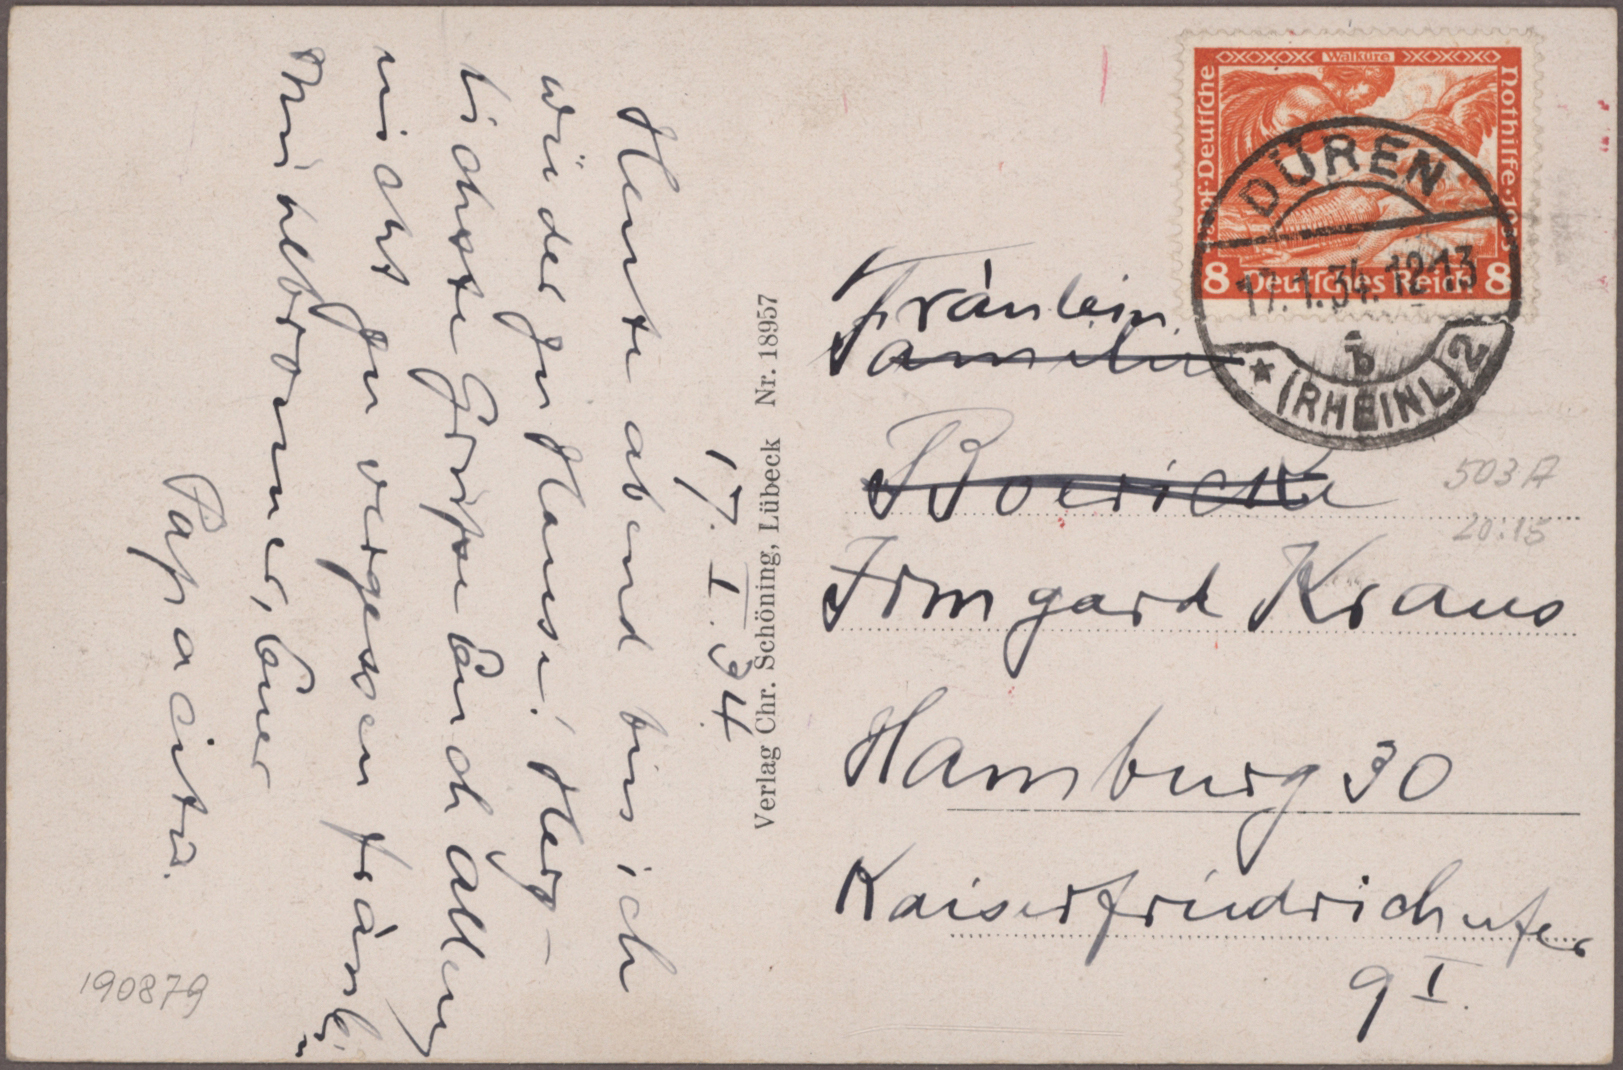 17. I. 34
Heute abend bin ich
wieder zu Hause! Herz-
lichste Grüsse Euch allen,
nicht zu vergessen Fräulein
Euer
Papacito.
190879
Verlag Chr. Schöning, Lübeck Nr. 18957
Walküre
Deutsche
Nothilfe
8 Deutsches Reich 8
DÜREN
17.1.34.12-13
b
(RHEINL) 2
Fräulein
Familie
Boericke
503 A
20:15
Irmgard Kraus
Hamburg 30
Kaiserfriedrichufer
9 I.